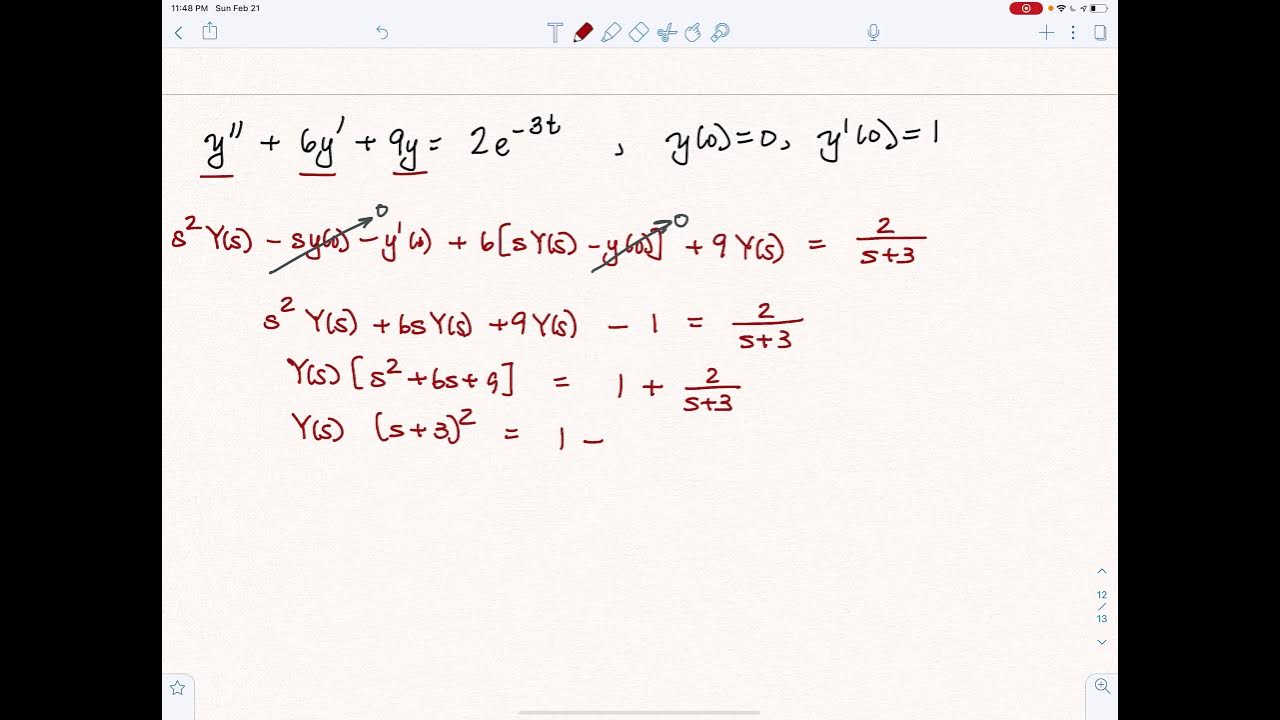 11:48 PM Sun Feb 21
y'' + 6y' + 9y = 2e^{-3t} , y(0)=0, y'(0)=1
s² Y(s) - sy(0) - y'(0) + 6[sY(s) - y(0)] + 9Y(s) = 2/(s+3)
0 0
s² Y(s) + 6sY(s) + 9Y(s) - 1 = 2/(s+3)
Y(s) [s² + 6s + 9] = 1 + 2/(s+3)
Y(s) (s+3)² = 1 -
12
/
13